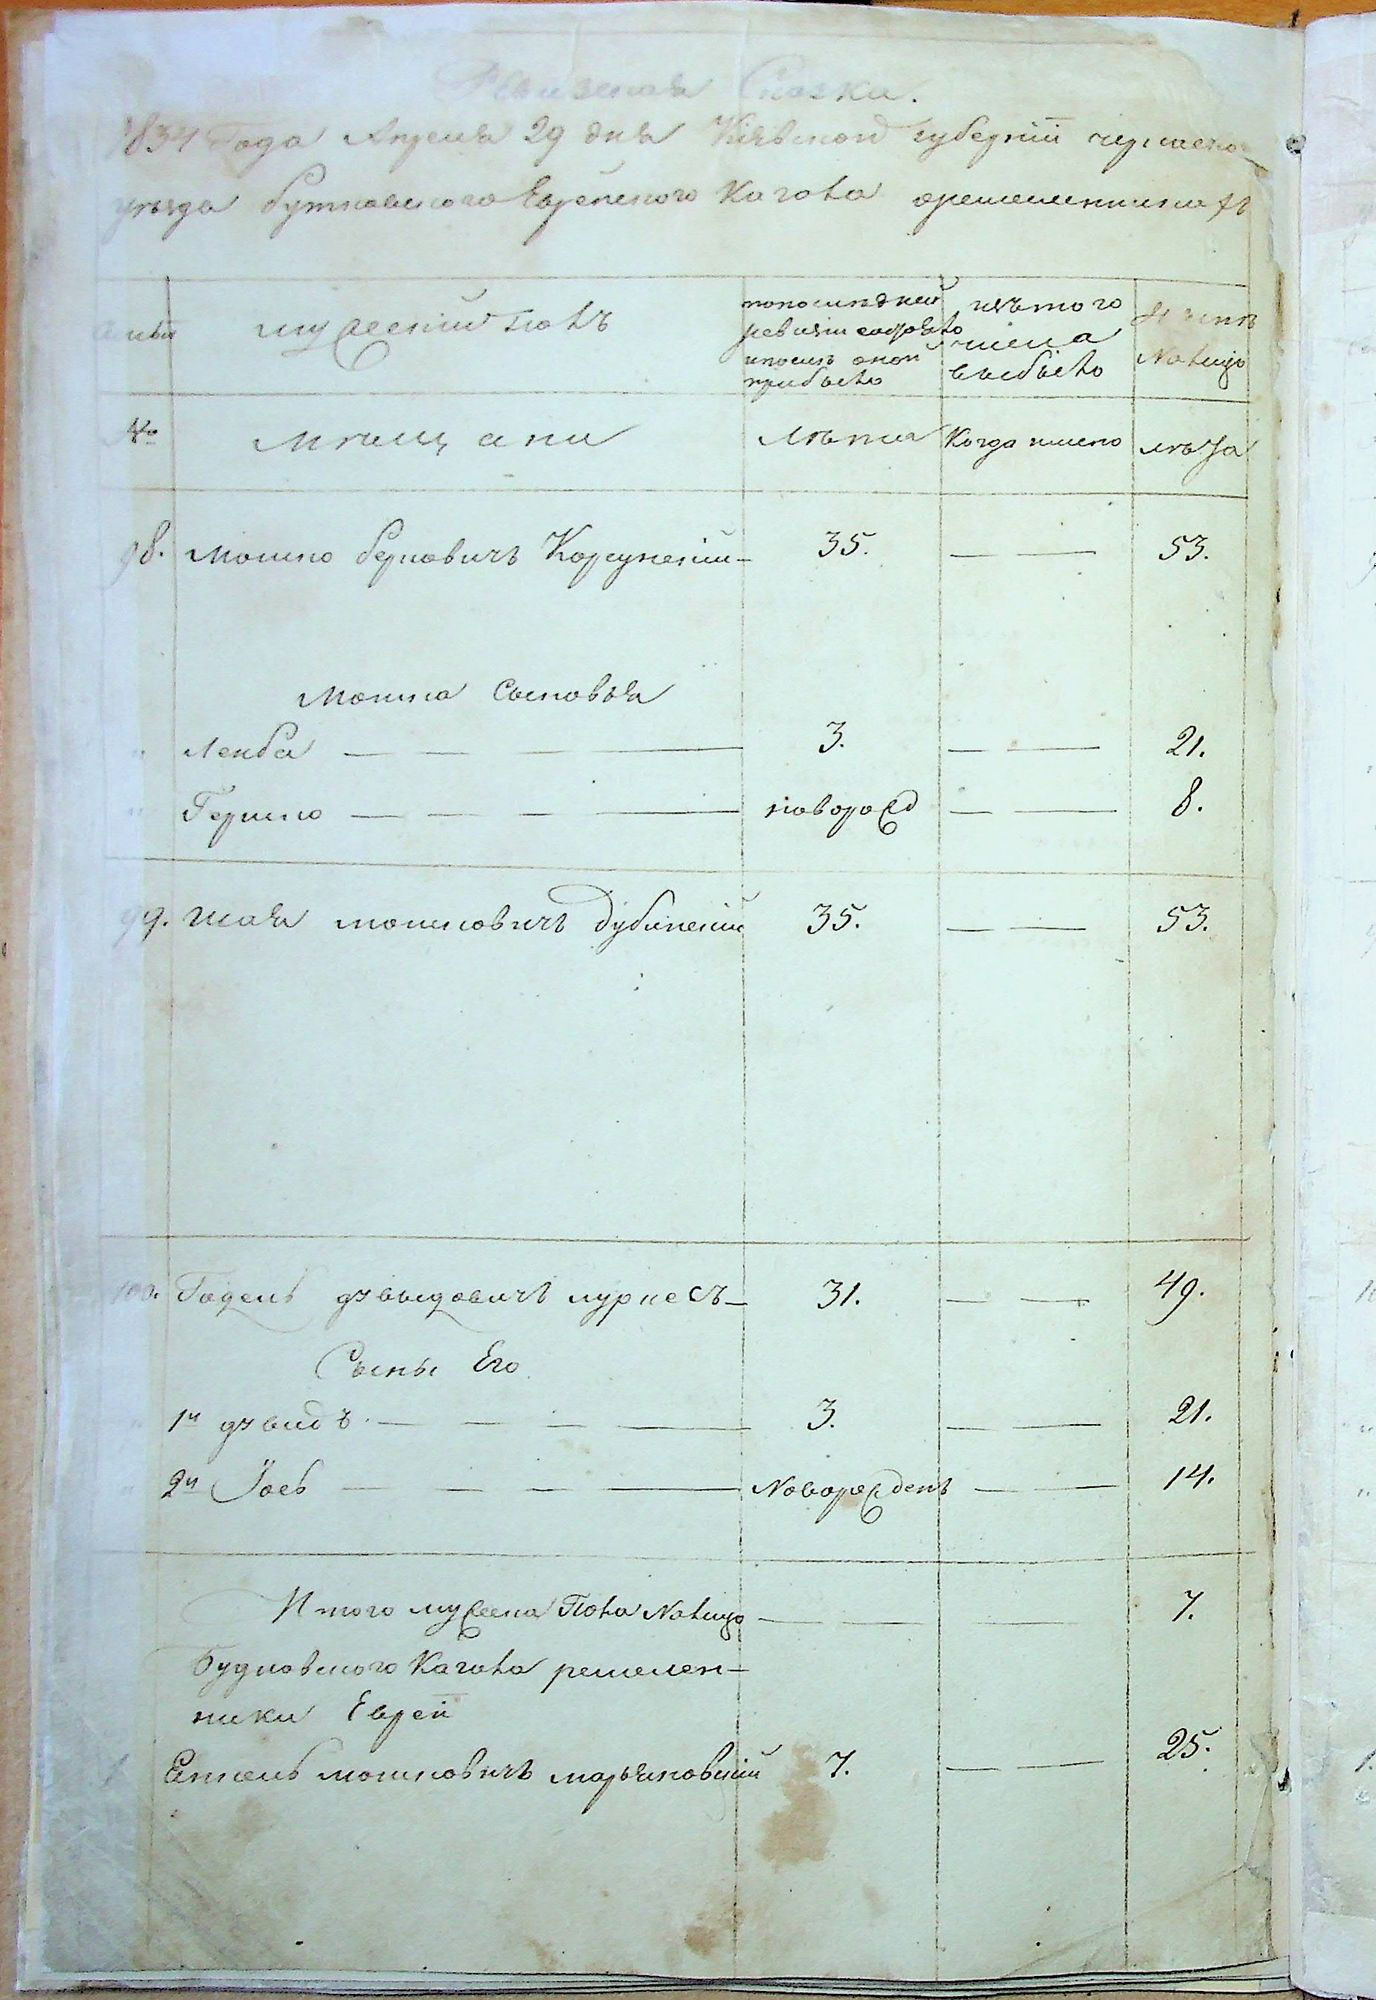 Ревизская Сказка.
1834 Года Апреля 29 дня Киевской губернии
уезда Еврейского Кагала
мужеский полъ
по последней
ревизии состояло
и после оной
прибыло
изъ того
числа
выбыло
Ныне
Налицо
№
Мещани
Лета
Когда имено
лета
98. Мошко Берковичъ Корсунский — 35. — — 53.
Мошка Сыновья
Лейба — — — — 3. — — 21.
Гершко — — — — новорожд — — 8.
99. Шая Мошковичъ Дубинский 35. — — 53.
100. дувыдовичъ — 31. — — 49.
Сыны Его
1й дувидъ — — — — 3. — — 21.
2й — — — — Новорожденъ — — 14.
Итого мужеска Пола Налицо — — — 7.
Кагала ремеслен-
ники Еврей
Мошковичъ Марьяновский 7. — — 25.